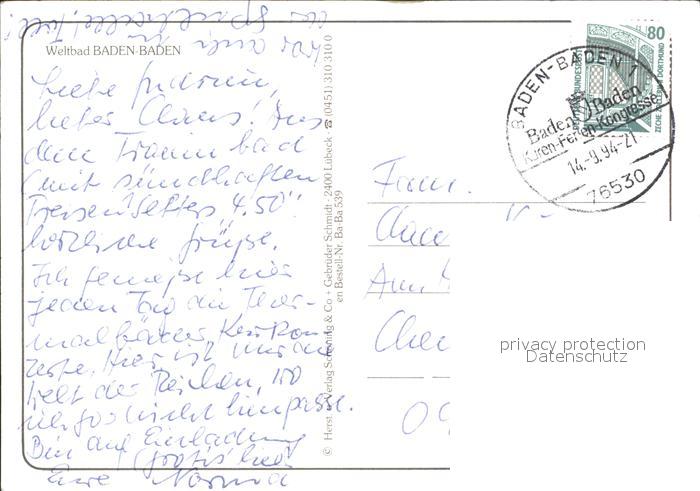 Weltbad BADEN-BADEN
Liebe
lieber Claus! Aus
dem Traumbad
(mit sündhaften
4.50"
herzliche Grüße.
Ich genieße hier
jeden Tag die Ther-
malbäder, Kurkon-
zerte. Hier ist
Welt der Reichen, wo
ich gar nicht hinpasse.
Bin auf Einladung
(gratis) hier
Eure
© Herst. u. Verlag Schöning & Co + Gebrüder Schmidt · 2400 Lübeck · ☎ (0451) 310 310 0
en Bestell-Nr. Ba-Ba 539
80
DEUTSCHE BUNDESPOST
ZECHE ZOLLERN II DORTMUND
BADEN-BADEN 1
Baden Baden
Kuren-Ferien-Kongresse
14.-9.94-21
76530
Fam.
Clau
Am
Che
09
privacy protection
Datenschutz